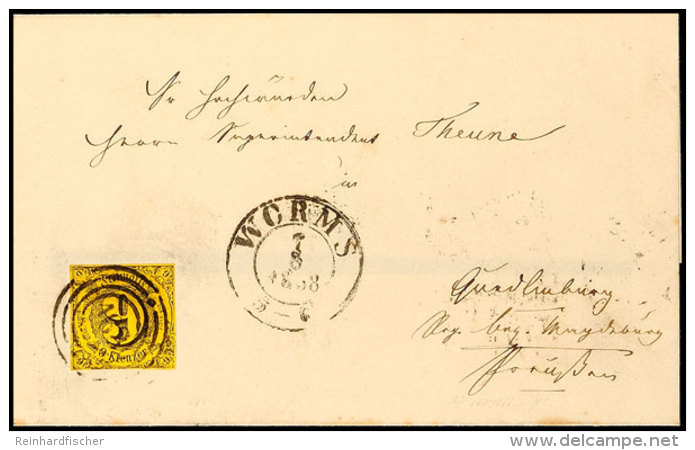 Sr Hochwürden
Herrn Superintendent Theune
in
WORMS
7
8
1858
Quedlinburg
Reg. bez. Magdeburg
Preußen
9 Kreuzer
Reinhardfischer
www.delcampe.net